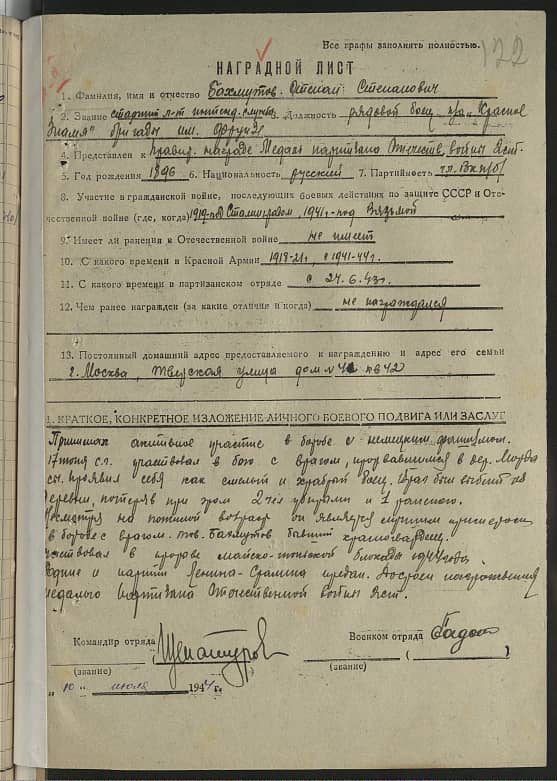 Все графы заполнять полностью.
122
НАГРАДНОЙ ЛИСТ
1. Фамилия, имя и отчество Бахмутов Степан Степанович
2. Звание старший л-т интенд. службы 3. Должность рядовой боец п/о "Красное
Знамя" бригады им. Фрунзе
4. Представлен к правит. награде Медаль партизана Отечеств. войны Iст.
5. Год рождения 1896 6. Национальность русский 7. Партийность чл. ВКП(б)
8. Участие в гражданской войне, последующих боевых действиях по защите СССР и Оте-
чественной войне (где, когда) 1919-под Сталинградом, 1941г-под Вязьмой
9. Имеет ли ранения в Отечественной войне не имеет
10. С какого времени в Красной Армии с 1941-44г.
11. С какого времени в партизанском отряде с 24.6.43г.
12. Чем ранее награжден (за какие отличия и когда) не награждался
13. Постоянный домашний адрес предоставляемого к награждению и адрес его семьи
г. Москва, Тверская улица дом № кв 42
1. КРАТКОЕ, КОНКРЕТНОЕ ИЗЛОЖЕНИЕ ЛИЧНОГО БОЕВОГО ПОДВИГА ИЛИ ЗАСЛУГ
Принимал активное участие в борьбе с немецким фашизмом.
17 июня с.г. участвовал в бою с врагом, прорвавшимся в дер.
проявил себя как смелый и храбрый боец. Враг был выбит из
деревни, потеряв при этом 2-чел убитыми и 1 раненого.
Несмотря на пожилой возраст он является лучшим примером
в борьбе с врагом. тов. Бахмутов бывший красногвардеец.
участвовал в прорыве майско-июньской блокады 1944 года.
Родине и партии Ленина-Сталина предан. Достоен награждения
медалью партизана Отечественной войны Iст.
Командир отряда
Военком отряда
(звание)
(звание)
"10" июля 1944 г.